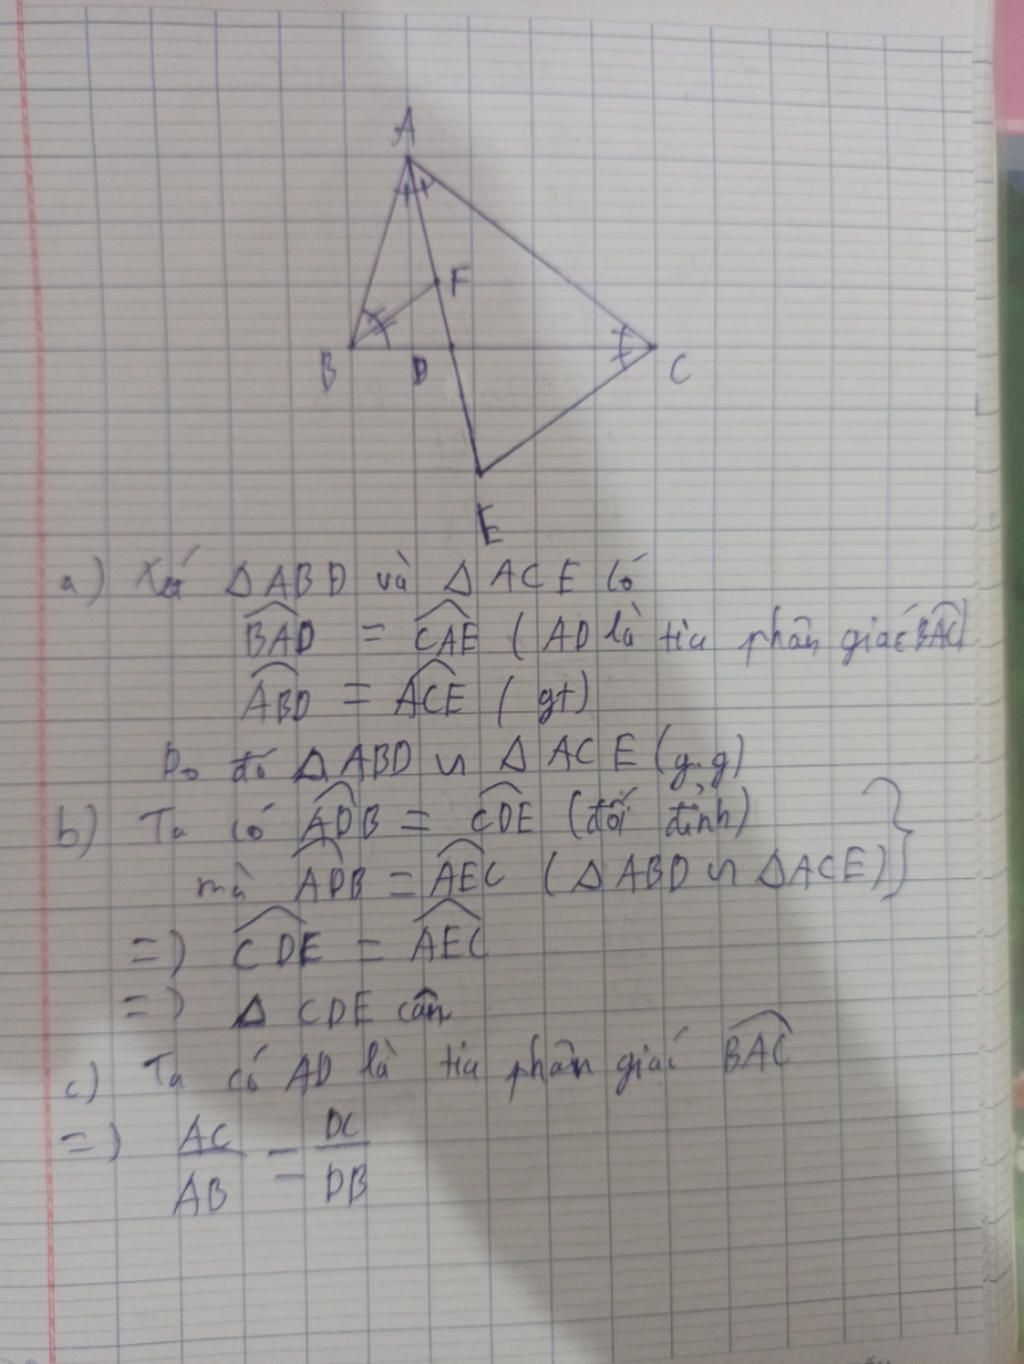 A
F
B
D
C
E
a) Xét △ABD và △ACE có
BAD = CAE (AD là tia phân giác BAC)
ABD = ACE (gt)
Do đó △ABD ∽ △ACE (g.g)
b) Ta có ADB = CDE (đối đỉnh)
mà ADB = AEC (△ABD ∽ △ACE)}
=) CDE = AEC
=) △ CDE cân
c) Ta có AD là tia phân giác BAC
=) AC/AB = DC/DB